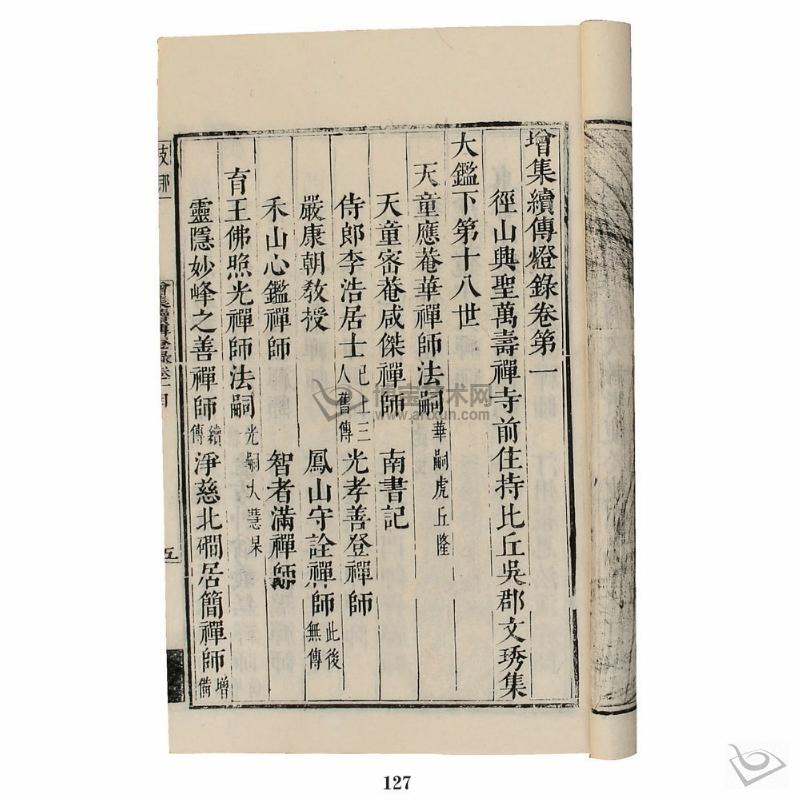 增集續傳燈錄卷第一
徑山興聖萬壽禪寺前住持比丘吳郡文琇集
大鑑下第十八世
天童應菴華禪師法嗣 華嗣虎丘隆
天童密菴咸傑禪師 南書記
侍郎李浩居士 已上三人舊傳 光孝善登禪師
嚴康朝教授 鳳山守詮禪師 此後無傳
禾山心鑑禪師 智者滿禪師
育王佛照光禪師法嗣 光嗣大慧杲
靈隱妙峰之善禪師 續傳 淨慈北磵居簡禪師 增備
增集續傳燈錄卷一目
五
博宝艺术网
www.artxun.com
127